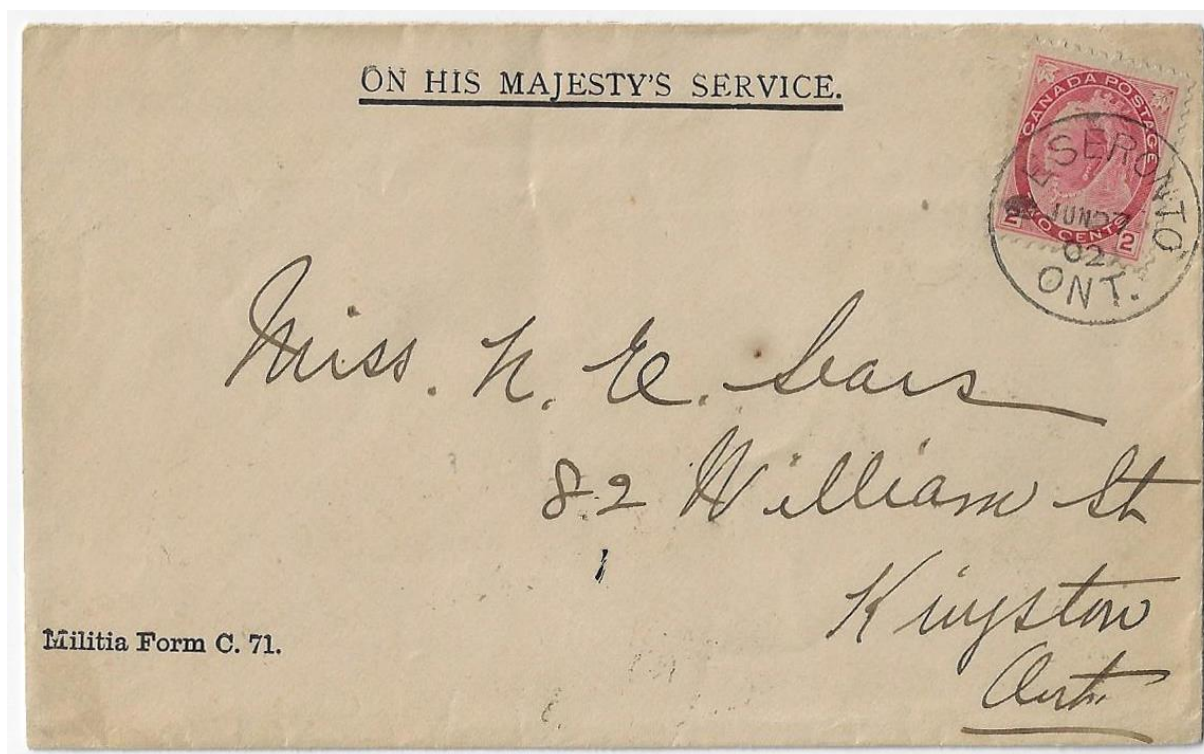 ON HIS MAJESTY'S SERVICE.
CANADA POSTAGE
2 TWO CENTS 2
ESERONTO
JUN 27
02
ONT.
Miss. N. E. Sears
82 William St
Kingston
Ont.
Militia Form C. 71.